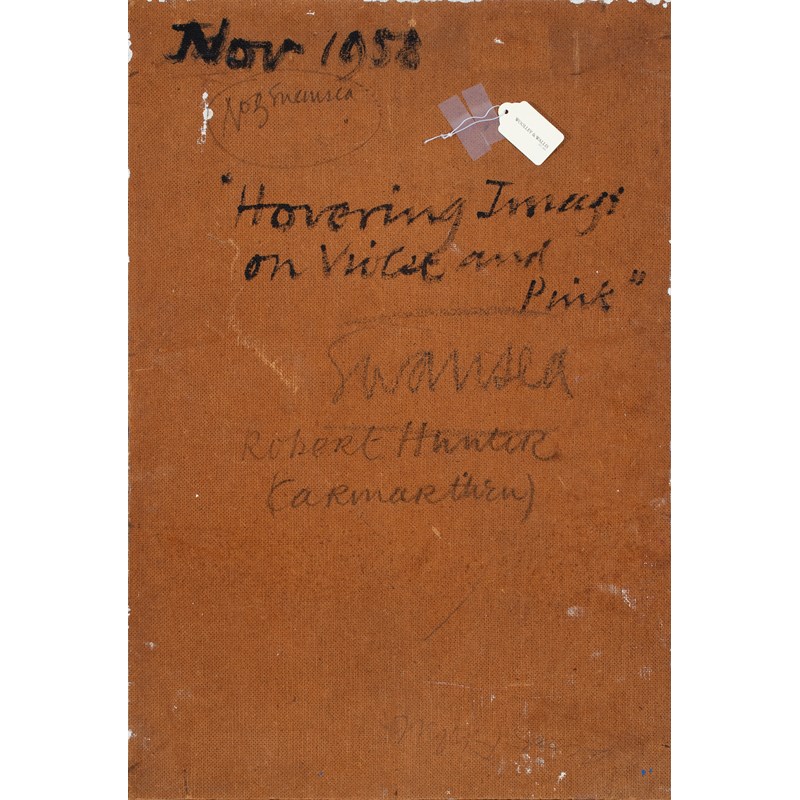 Nov 1958
No 3 Swansea
"Hovering Image
on Violet and
Pink"
Swansea
Robert Hunter
(Carmarthen)